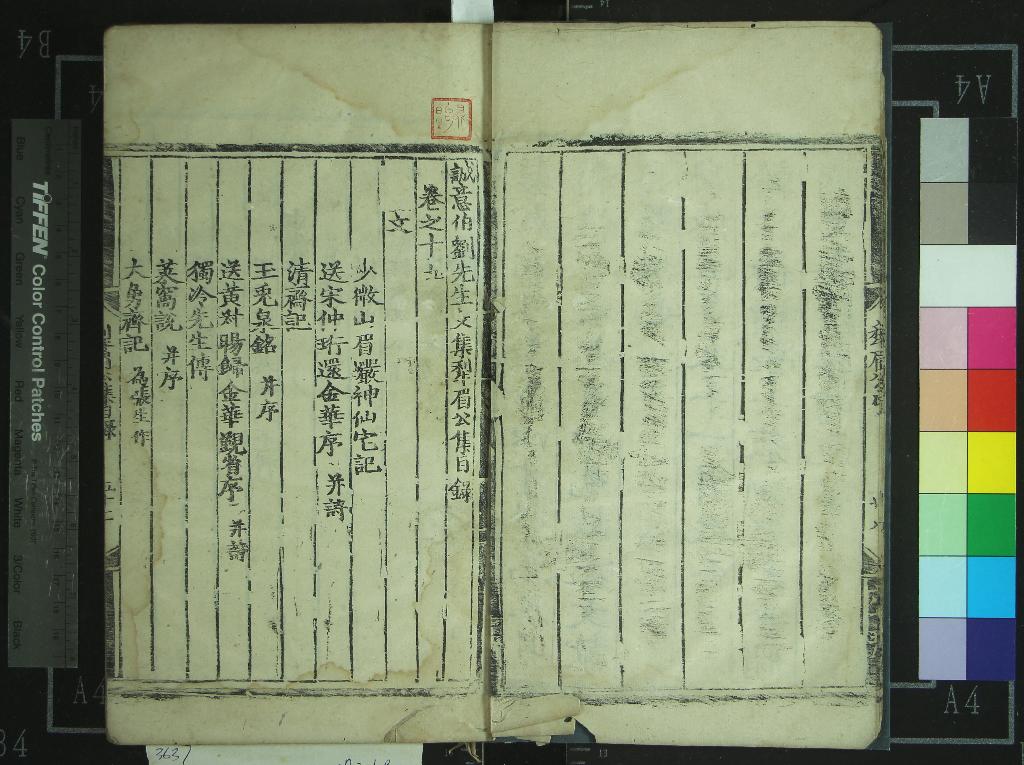 誠意伯劉先生文集犁眉公集目錄
卷之十九
文
少微山眉巖神仙宅記
送宋仲珩還金華序 并詩
清齋記
玉兎泉銘 并序
送黃對暘歸金華覲省序 并詩
獨冷先生傳
并序
大勇齋記 為張生作
TIFFEN Color Control Patches
Blue Cyan Green Yellow Red Magenta White 3/Color Black
B4
A4
A4
A4
A4
B4
3637